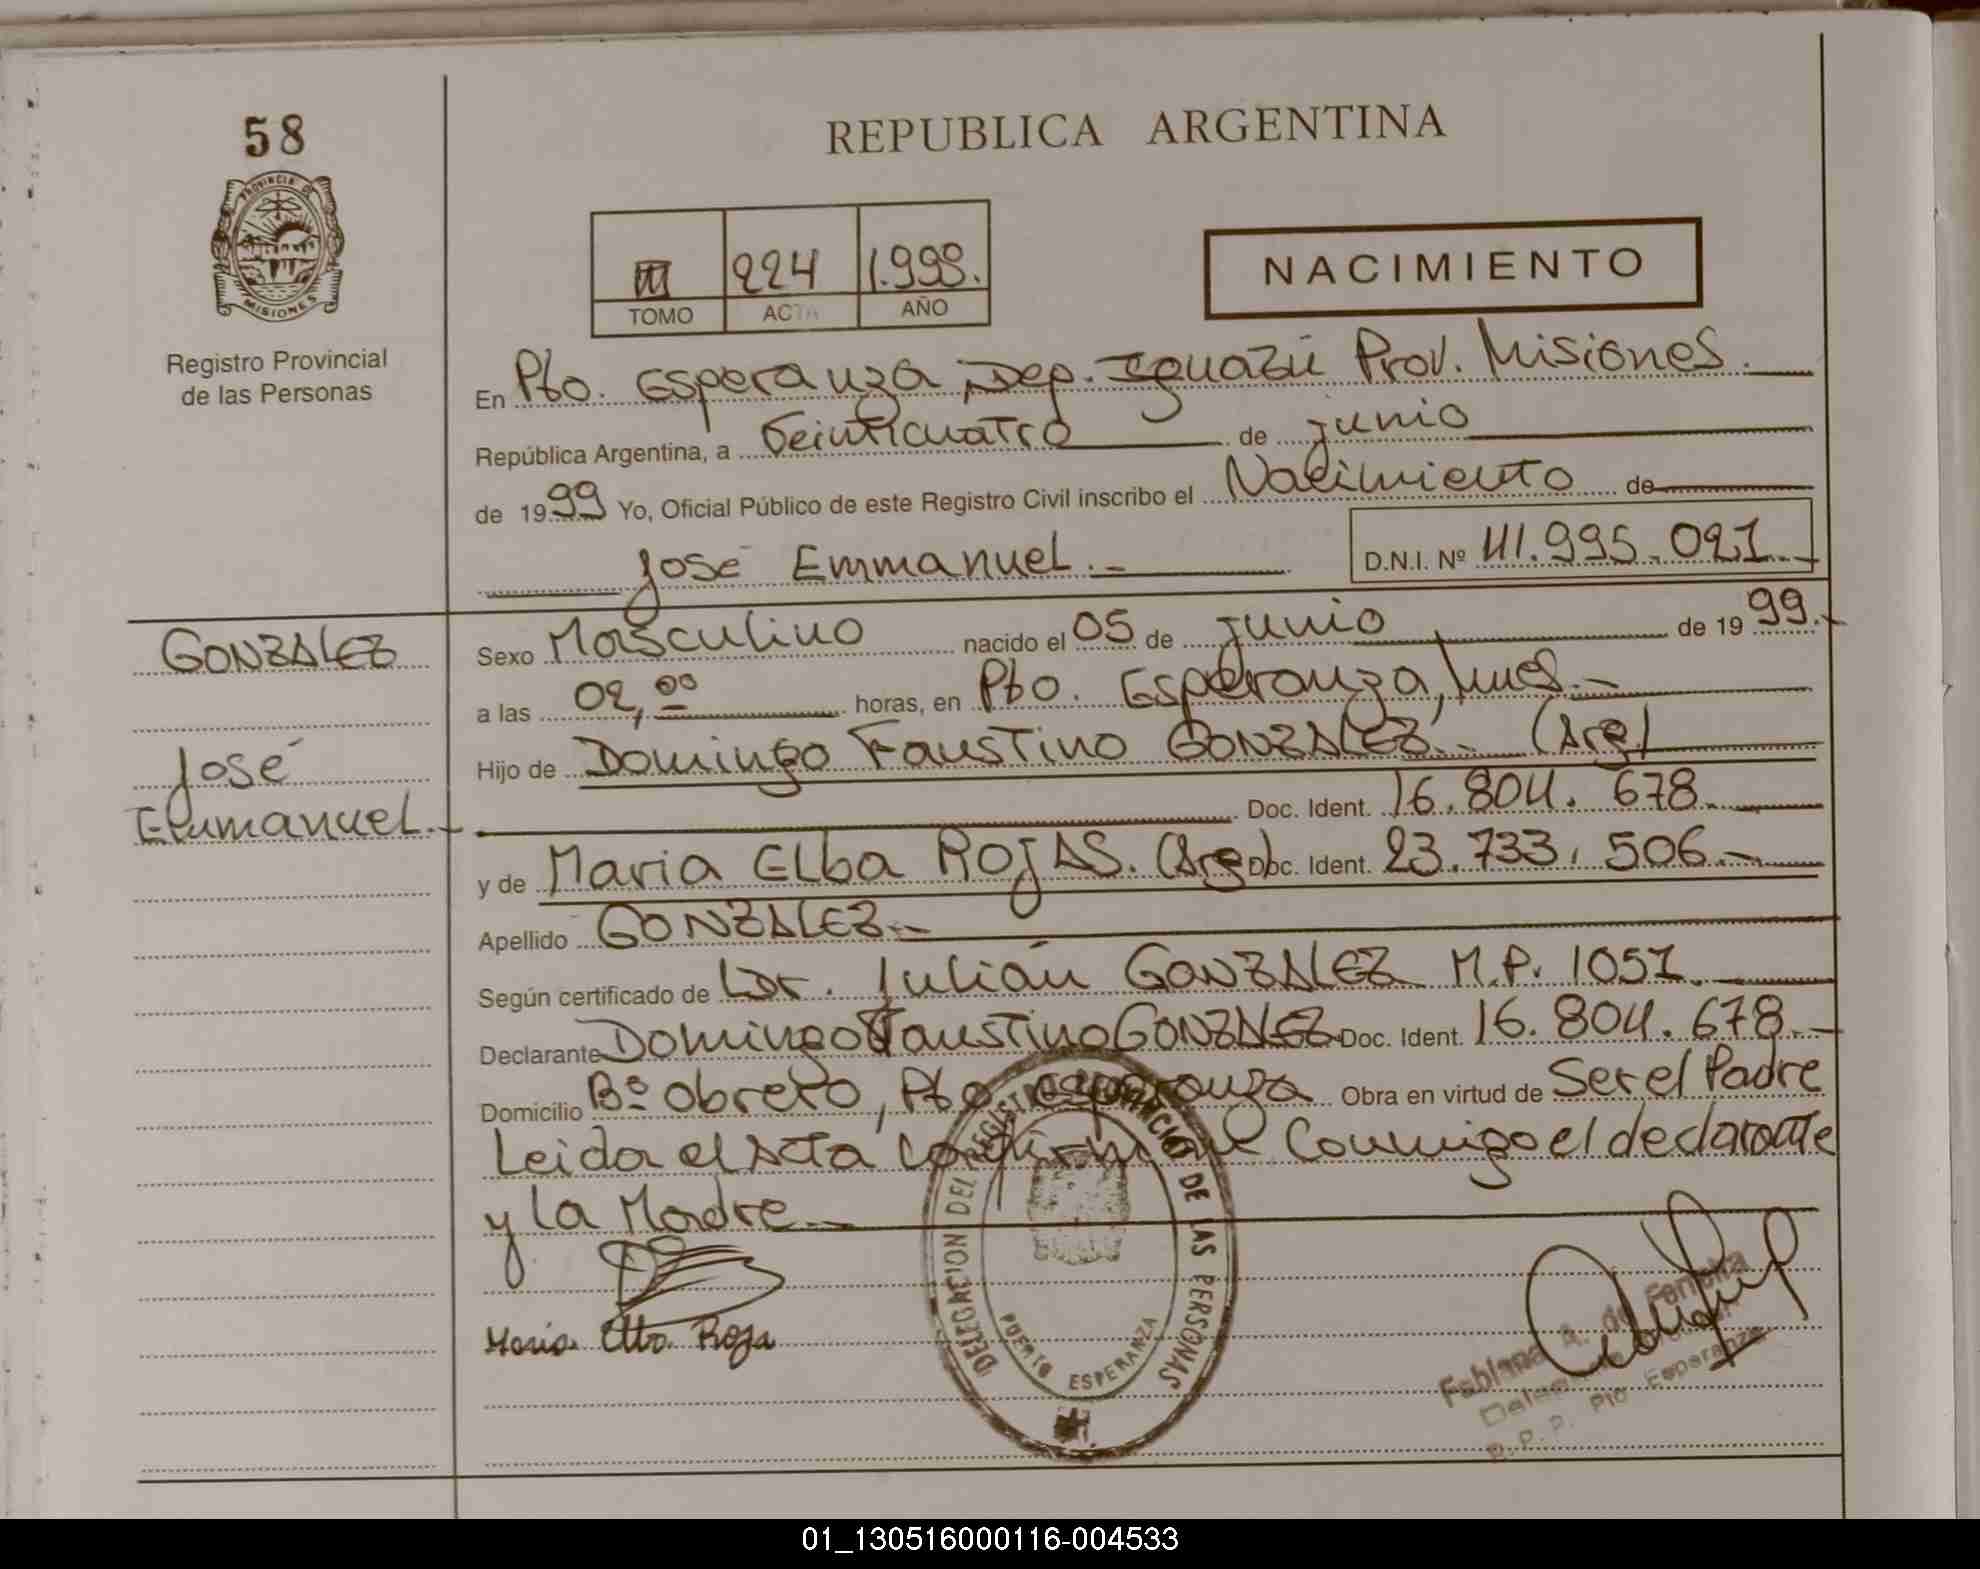 58
PROVINCIA DE
MISIONES
Registro Provincial
de las Personas
REPUBLICA ARGENTINA
III 224 1.999.
TOMO ACTA AÑO
NACIMIENTO
En Pto. Esperanza, Dep. Iguazú Prov. Misiones.
República Argentina, a Veinticuatro de junio
de 1999 Yo, Oficial Público de este Registro Civil inscribo el Nacimiento de
José Emmanuel.-
D.N.I. Nº 41.995.021.-
GONZALEZ
José
Emmanuel.-
Sexo Masculino nacido el 05 de junio de 1999.-
a las 02,00 horas, en Pto. Esperanza, Mnes.-
Hijo de Domingo Faustino GONZALEZ.- (Arg)
Doc. Ident. 16.804.678.-
y de Maria Elba ROJAS. (Arg) Doc. Ident. 23.733.506.-
Apellido GONZALEZ.-
Según certificado de Dr. Julián GONZALEZ M.P. 1051.
Declarante Domingo Faustino GONZALEZ Doc. Ident. 16.804.678.-
Domicilio Bº Obrero, Pto Esperanza Obra en virtud de Ser el Padre
Leida el Acta Conmigo el declarante
y la Madre.-
Maria Elba Roja
DELEGACION DEL REGISTRO PROVINCIAL DE LAS PERSONAS
PUERTO ESPERANZA
Fabiana A. de
R.P.P. Pto Esperanza
01_130516000116-004533